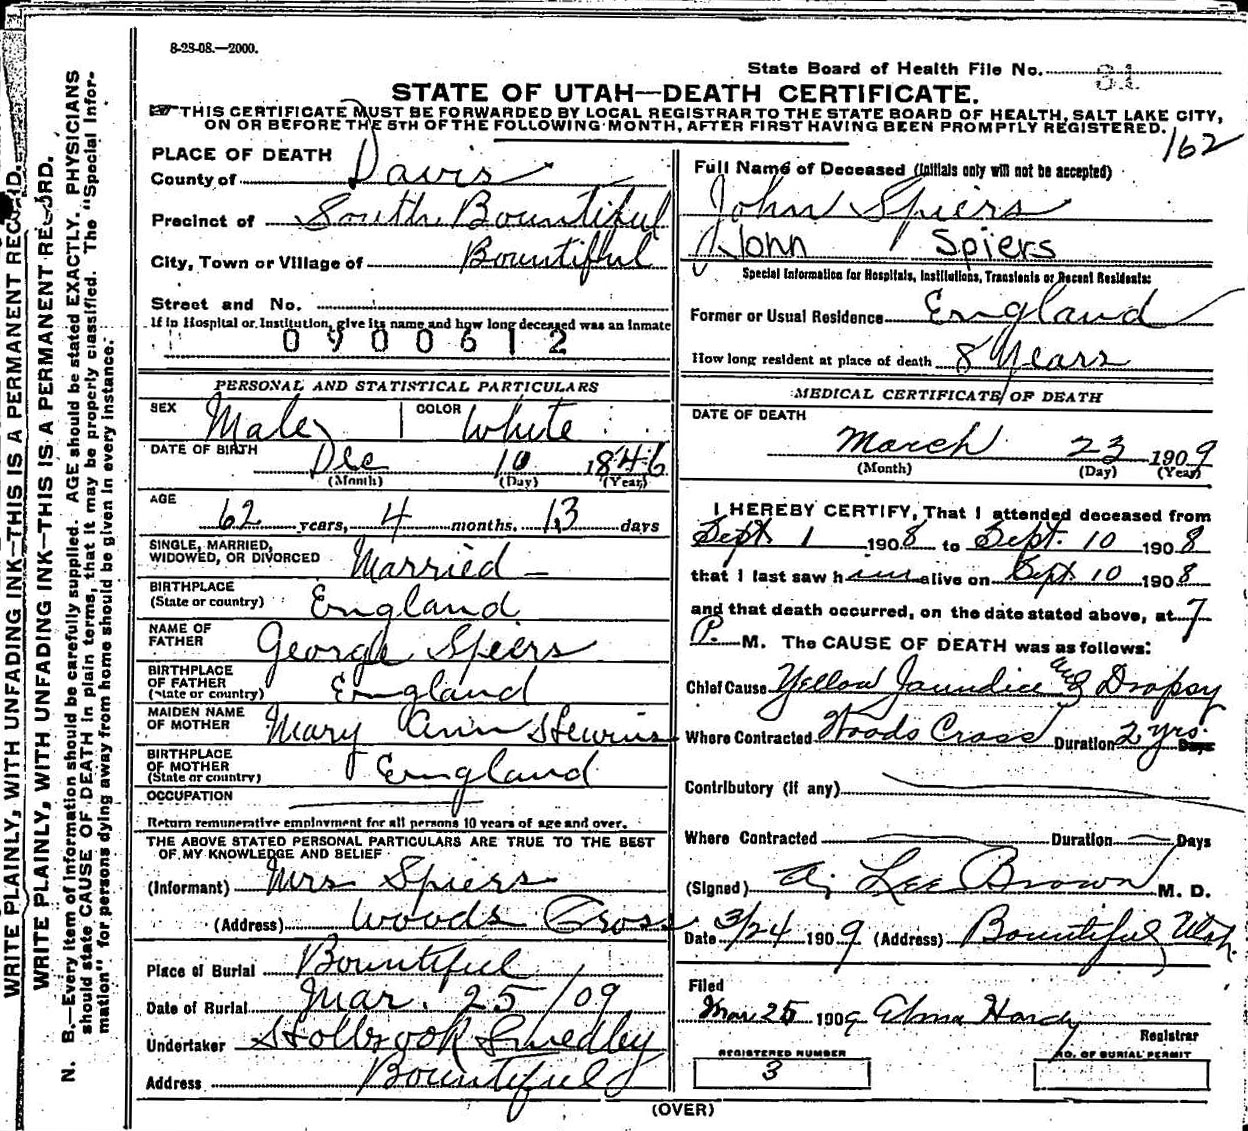 8-28-08.—2000.
State Board of Health File No. 31
STATE OF UTAH—DEATH CERTIFICATE.
THIS CERTIFICATE MUST BE FORWARDED BY LOCAL REGISTRAR TO THE STATE BOARD OF HEALTH, SALT LAKE CITY,
ON OR BEFORE THE 5TH OF THE FOLLOWING MONTH, AFTER FIRST HAVING BEEN PROMPTLY REGISTERED.
162
PLACE OF DEATH
County of Davis
Precinct of South Bountiful
City, Town or Village of Bountiful
Street and No.
If in Hospital or Institution, give its name and how long deceased was an inmate
0900612
PERSONAL AND STATISTICAL PARTICULARS
SEX Male COLOR White
DATE OF BIRTH Dec 10 1846
(Month) (Day) (Year)
AGE 62 years, 4 months. 13 days
SINGLE, MARRIED,
WIDOWED, OR DIVORCED Married
BIRTHPLACE
(State or country) England
NAME OF
FATHER George Spiers
BIRTHPLACE
OF FATHER
(State or country) England
MAIDEN NAME
OF MOTHER Mary Ann
BIRTHPLACE
OF MOTHER
(State or country) England
OCCUPATION
Return remunerative employment for all persons 10 years of age and over.
THE ABOVE STATED PERSONAL PARTICULARS ARE TRUE TO THE BEST
OF MY KNOWLEDGE AND BELIEF
(Informant) Mrs Spiers
(Address) Woods Cross
Place of Burial Bountiful
Date of Burial Mar. 25/09
Undertaker Holbrook Smedley
Address Bountiful
Full Name of Deceased (Initials only will not be accepted)
John Spiers
John Spiers
Special Information for Hospitals, Institutions, Transients or Recent Residents:
Former or Usual Residence England
How long resident at place of death 8 Years
MEDICAL CERTIFICATE OF DEATH
DATE OF DEATH
March 23 1909
(Month) (Day) (Year)
I HEREBY CERTIFY, That I attended deceased from
Sept 1 1908 to Sept. 10 1908
that I last saw him alive on Sept 10 1908
and that death occurred, on the date stated above, at 7
P. M. The CAUSE OF DEATH was as follows:
Chief Cause Yellow Jaundice and Dropsy
Where Contracted Woods Cross Duration 2 yrs. Days
Contributory (if any)
Where Contracted Duration Days
(Signed) A. Lee Brown M. D.
Date 3/24 1909 (Address) Bountiful Utah.
Filed
Mar 25 1909 Alma Hardy
Registrar
REGISTERED NUMBER
3
NO. OF BURIAL PERMIT
(OVER)
WRITE PLAINLY, WITH UNFADING INK—THIS IS A PERMANENT RECORD.
WRITE PLAINLY, WITH UNFADING INK—THIS IS A PERMANENT RECORD.
N. B.—Every item of information should be carefully supplied. AGE should be stated EXACTLY. PHYSICIANS
should state CAUSE OF DEATH in plain terms, that it may be properly classified. The "Special Infor-
mation" for persons dying away from home should be given in every instance.